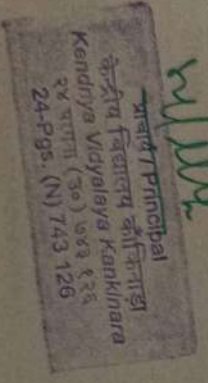 प्राचार्य/Principal
केन्द्रीय विद्यालय काँकिनाड़ा
Kendriya Vidyalaya Kankinara
२४ परगना (उ०) ७४३ १२६
24-Pgs. (N) 743 126